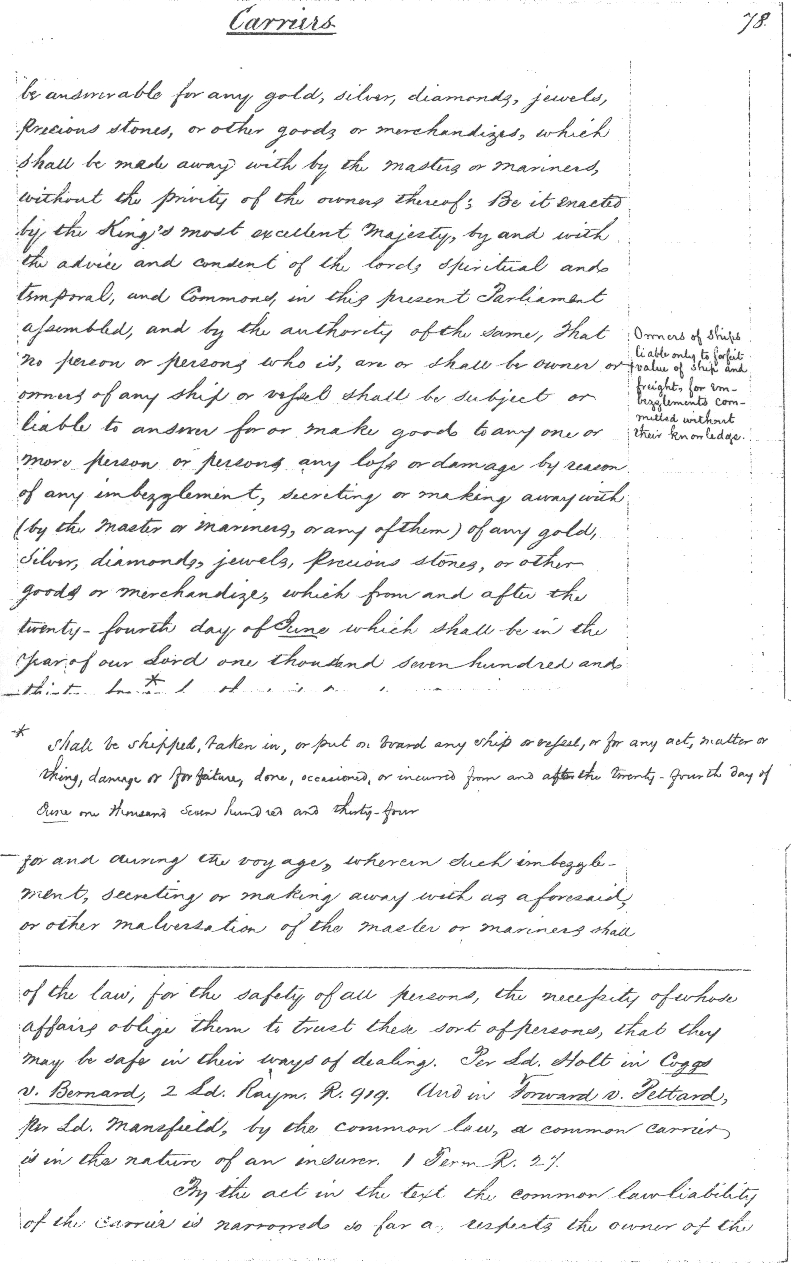 Carriers
78
be answerable for any gold, silver, diamonds, jewels,
precious stones, or other goods or merchandizes, which
shall be made away with by the masters or mariners,
without the privity of the owners thereof; Be it enacted
by the King's most excellent Majesty, by and with
the advice and consent of the lords spiritual and
temporal, and Commons, in this present Parliament
assembled, and by the authority of the same, That
no person or persons who is, are or shall be owner or
owners of any ship or vessel shall be subject or
liable to answer for or make good to any one or
more person or persons any loss or damage by reason
of any imbezzlement, secreting or making away with
(by the Master or Mariners, or any of them) of any gold,
silver, diamonds, jewels, precious stones, or other
goods or merchandize, which from and after the
twenty-fourth day of June which shall be in the
year of our Lord one thousand seven hundred and
Owners of Ships
liable only to forfeit
value of ship and
freight, for em-
bezzlements com-
mitted without
their knowledge.
* shall be shipped, taken in, or put on board any ship or vessel, or for any act, matter or
thing, damage or forfeiture, done, occasioned, or incurred from and after the twenty-fourth day of
June one thousand seven hundred and thirty-four
for and during the voyage, wherein such imbezzle-
ment, secreting or making away with as aforesaid,
or other malversation of the master or mariners shall
of the law, for the safety of all persons, the necessity of whose
affairs oblige them to trust these sort of persons, that they
may be safe in their ways of dealing. Per Ld. Holt in Coggs
v. Bernard, 2 Ld. Raym. R. 919. And in Forward v. Pettard,
per Ld. Mansfield, by the common law, a common carrier
is in the nature of an insurer. 1 Term R. 27.
By the act in the text the common law liability
of the carrier is narrowed so far as respects the owner of the